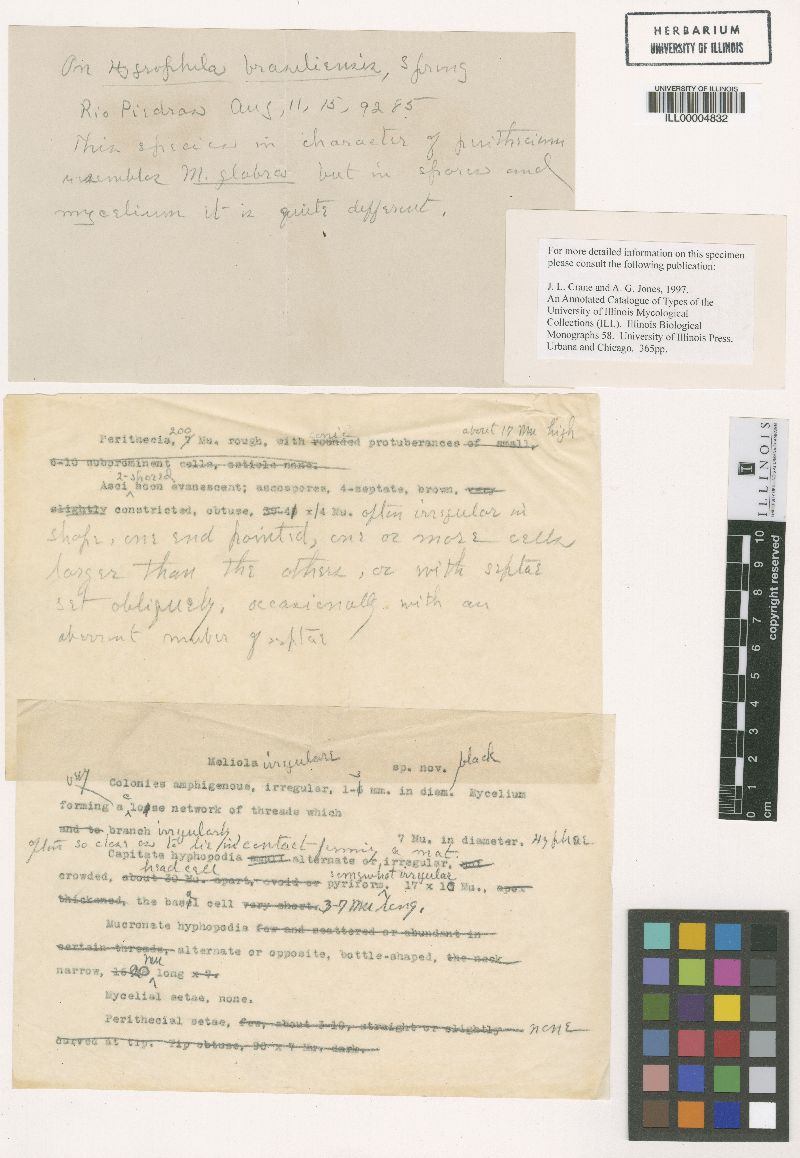 HERBARIUM
UNIVERSITY OF ILLINOIS
UNIVERSITY OF ILLINOIS
ILL00004832
On Hygrophila brasiliensis, Spring
Rio Piedras Aug, 11, 15, 9285
This species in character of perithecium
resembles M. glabra but in spores and
mycelium it is quite different.
For more detailed information on this specimen
please consult the following publication:
J. L. Crane and A. G. Jones, 1997.
An Annotated Catalogue of Types of the
University of Illinois Mycological
Collections (ILL). Illinois Biological
Monographs 58. University of Illinois Press.
Urbana and Chicago. 365pp.
200 conic about 17 Mu high
Perithecia, 7 Mu. rough, with rounded protuberances of small,
6-10 subprominent cells, ostiole none.
2-spored
Asci soon evanescent; ascospores, 4-septate, brown, very
slightly constricted, obtuse, x 14 Mu. often irregular in
shape, one end pointed, one or more cells
larger than the others, or with septae
set obliquely, occasionally with an
aberrant number of septae
Meliola irregulare sp. nov. black
Colonies amphigenous, irregular, 1-3 mm. in diam. Mycelium
forming a close network of threads which
and to branch irregularly 7 Mu. in diameter. Hyphae
often so close as to lie in contact forming a mat.
Capitate hyphopodia small alternate or irregular, not
head cell somewhat irregular
crowded, about 30 Mu. apart, ovoid or pyriform. 17 x 10 Mu., apex
thickened, the basal cell very short. 3-7 Mu long.
Mucronate hyphopodia few and scattered or abundant in
certain threads, alternate or opposite, bottle-shaped, the neck
narrow, 20 Mu long x 7.
Mycelial setae, none.
Perithecial setae, few, about 3-10, straight or slightly none
curved at tip. Tip obtuse, 90 x 7 Mu. dark.
ILLINOIS
copyright reserved
0 1 2 3 4 5 6 7 8 9 10
cm